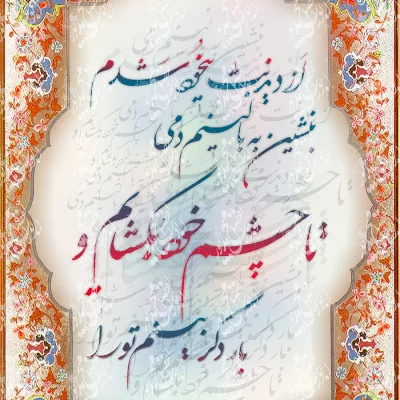 از دیدنت بیخود شدم
بنشین به بالینم دمی
تا چشم خود بگشایم و
بار دگر بینم تو را